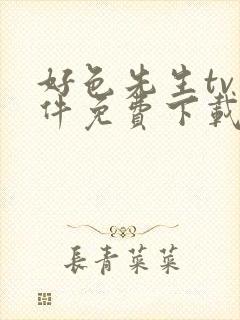 好色先生tv
件免费下载
長青菜菜